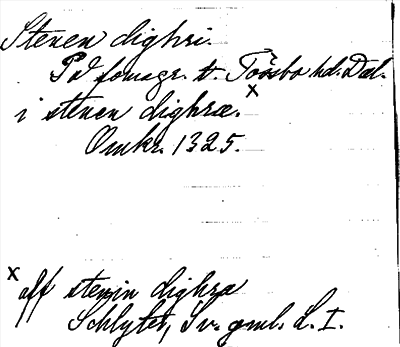 Stenen dighri.
På fornsgr. t. Tössbo hd. Dal.
x
i stenen dighræ.
Omkr. 1325.
x aff stenin dighræ
Schlyter, Sv. gml. L. I.